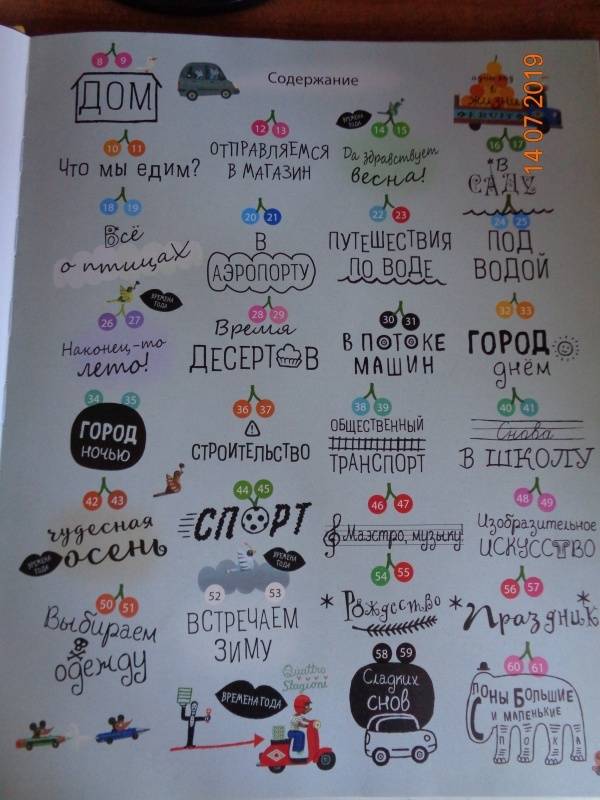 Содержание
14 07 2019
8 9
ДОМ
В
ЖИЗНИ
10 11
Что мы едим?
12 13
ОТПРАВЛЯЕМСЯ
В МАГАЗИН
ВРЕМЕНА ГОДА
14 15
Да здравствует
весна!
16 17
В
САДУ
18 19
Всё
о птицах
20 21
В
АЭРОПОРТУ
22 23
ПУТЕШЕСТВИЯ
ПО ВОДЕ
24 25
ПОД
ВОДОЙ
ВРЕМЕНА ГОДА
26 27
Наконец-то
лето!
28 29
Время
ДЕСЕРТОВ
30 31
В ПОТОКЕ
МАШИН
32 33
ГОРОД
днём
34 35
ГОРОД
НОЧЬЮ
36 37
СТРОИТЕЛЬСТВО
38 39
ОБЩЕСТВЕННЫЙ
ТРАНСПОРТ
40 41
Снова
В ШКОЛУ
42 43
чудесная
осень
ВРЕМЕНА ГОДА
44 45
СПОРТ
46 47
Маэстро, музыку
48 49
Изобразительное
ИСКУССТВО
50 51
Выбираем
одежду
ВРЕМЕНА ГОДА
52 53
ВСТРЕЧАЕМ
ЗИМУ
54 55
* Рождество
56 57
* Праздник *
ВРЕМЕНА ГОДА
Quattro
Stagioni
58 59
Сладких
снов
60 61
Слоны Большие
и маленькие
ПОКА